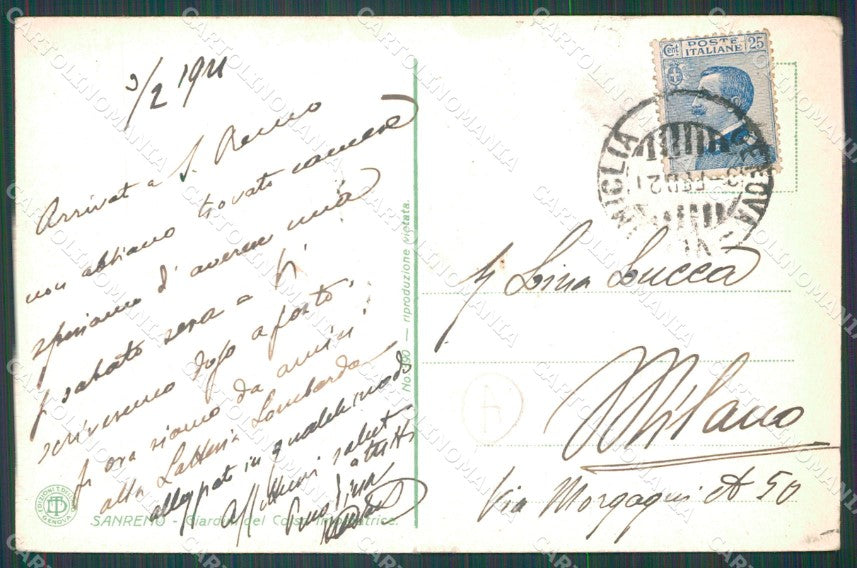 3/2 1921
Arrivat a S. Remo
non abbiamo trovato camera
speriamo d'averem una
p sabato sera a
scriveremo dopo a posto.
p ora siamo da amici
alla Latteria Lombarda
in qualche modo
saluti
a tutti
No — riproduzione vietata.
SANREMO - Giardini del Corso Imperatrice.
POSTE
ITALIANE
Cent 25
GENOVA
3-FEB 21
Lina Lucca
Milano
Via Morgagni 50
4
CARTOLINOMANIA